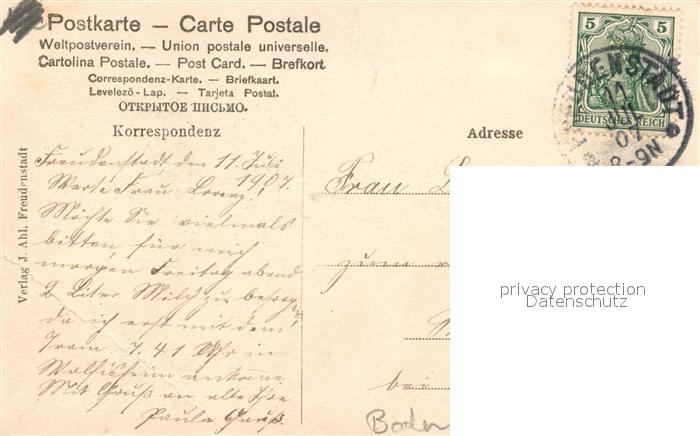 Postkarte – Carte Postale
Weltpostverein. — Union postale universelle.
Cartolina Postale. — Post Card. — Brefkort
Correspondenz-Karte. — Briefkaart.
Levelezö-Lap. — Tarjeta Postal.
ОТКРЫТОЕ ПИСЬМО.
Korrespondenz
Adresse
5 5
DEUTSCHES REICH
11
07
8-9N
Verlag J. Ahl, Freudenstadt
Freudenstadt, den 11. Juli
1907.
Werte Frau Lorenz!
Möchte Sie vielmals
bitten, für mich
morgen Freitag abend
2 Liter Milch zu
da ich erst mit dem
Tram 7.41 Uhr in
Wolfisheim ankomme.
Mit Gruß an alle Ihre
Paula Gauß.
Frau
zum
bei
Baden
privacy protection
Datenschutz